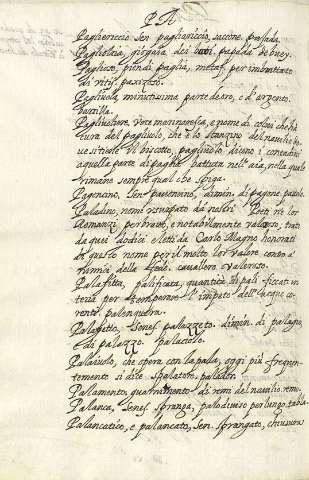 P A
Pagliericcio Sen pagliariccio, saccone
Pagliolaia, giogaia dei buoi. papada de buey.
Pagliolo, piu di paglia, metaf. per imbrattato
di vitij
Pagliuola, minutissima parte de oro, e d'argento.
Pagliuoliere, Voce marinaresca, e nome di colui che hà
cura del pagliuolo, che è lo stanzino del navilio do-
ve si tiene il biscotto, pagliuolo dicono i contadini
à quella parte di paglia battuta nell'aia, nella quale
rimane sempre qualche spiga.
dimin. di pagone
Paladino, nome usurpato dà nostri Poeti ne lor
Romanzi per bravo, e notabilmente valoroso, trat
da quei dodici eletti da Carlo Magno honorati
di questo nome per il molto lor valore contro à
nimici della fede. cavallero valeroso.
Palafitta, palificata, quantità di pali ficcati in
terra per rompere l'impeto dell'acque co-
renti palenquera.
Palagetto, Senes. palazzeto. dimin. di palagio,
e di palazzo. palaciolo.
Palaiuolo, che opera con la pala, oggi più frequen-
temente si dice Spalatore. palador.
Palamento, di remi del navilio
Palanca, Senes. Spranga, palo diviso per lungo, tabla
Palancatico, e palancato, Sen. Sprangato, chiusura